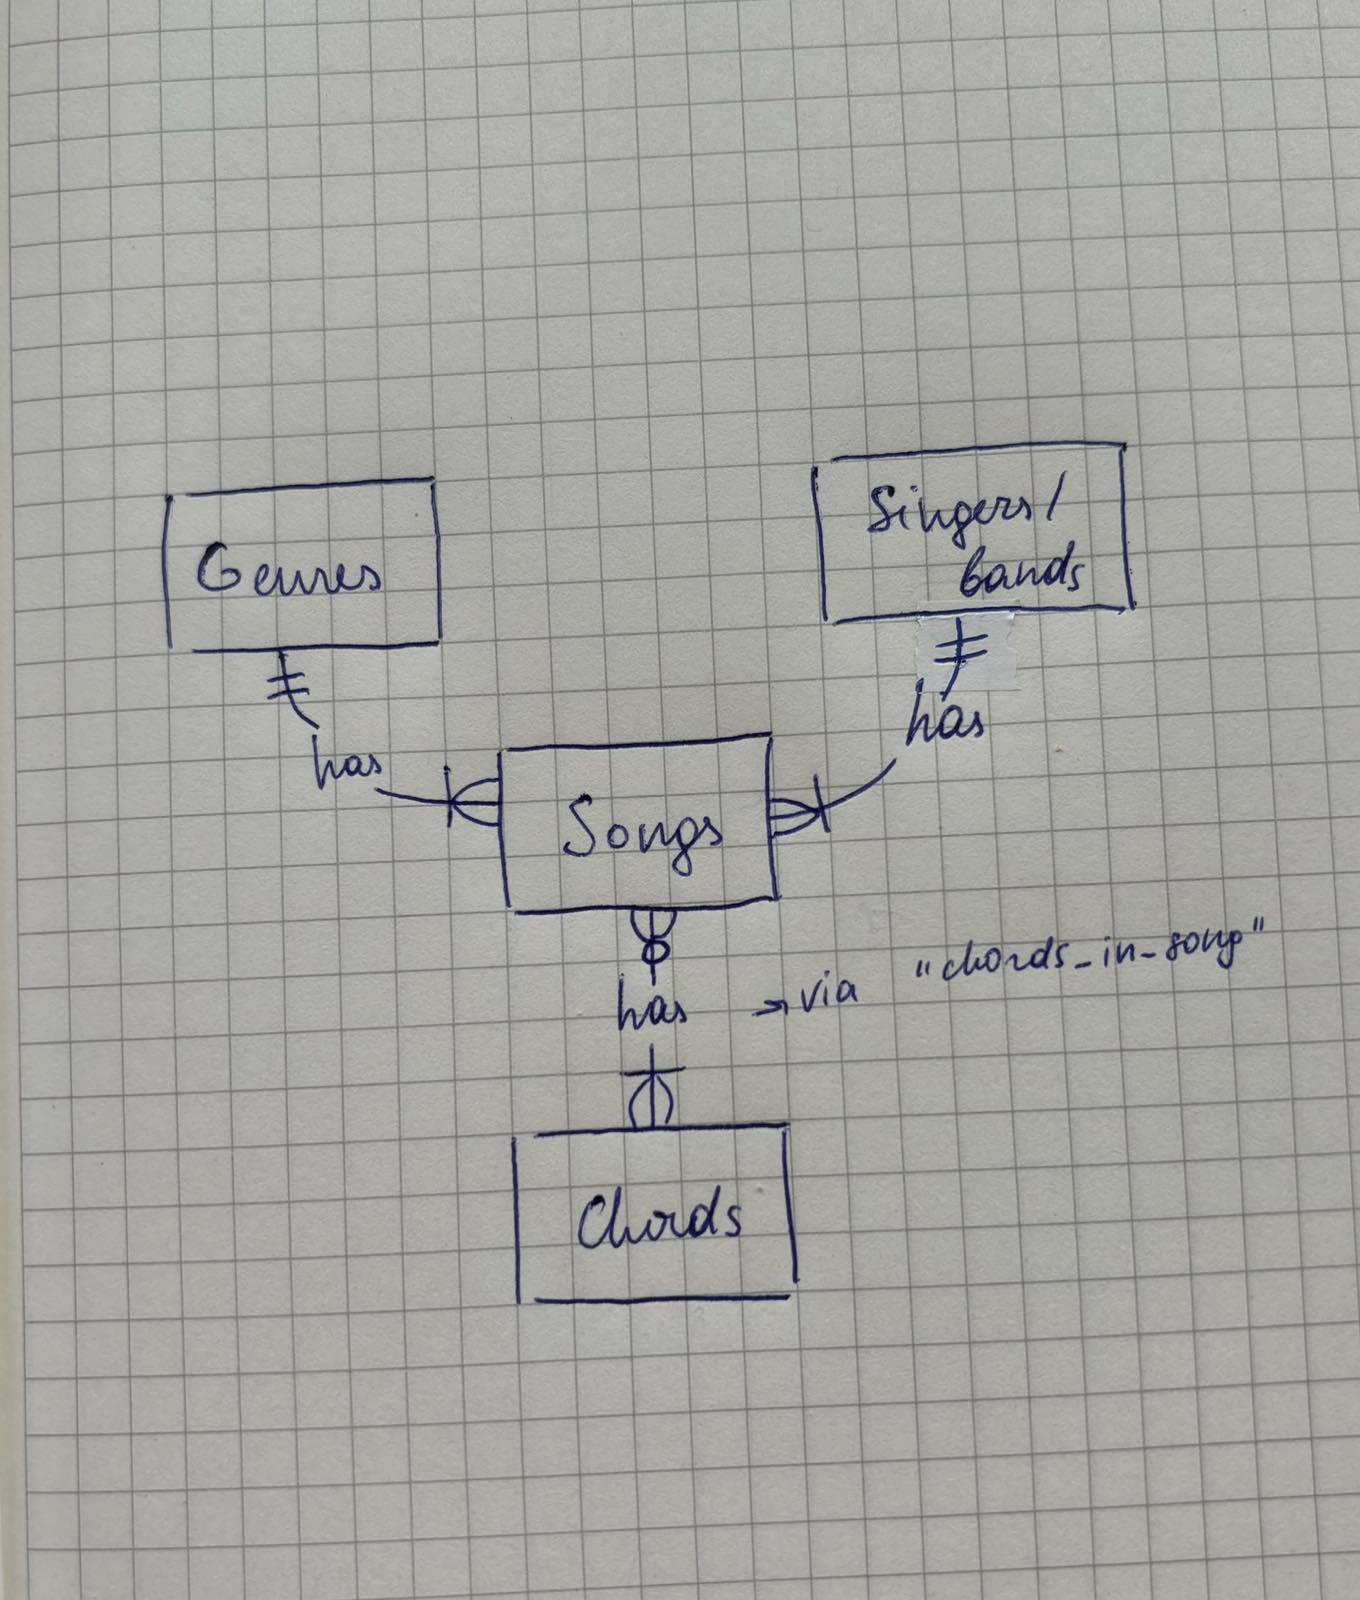 Genres
Singers/
bands
has
has
Songs
has → via "chords_in_song"
Chords